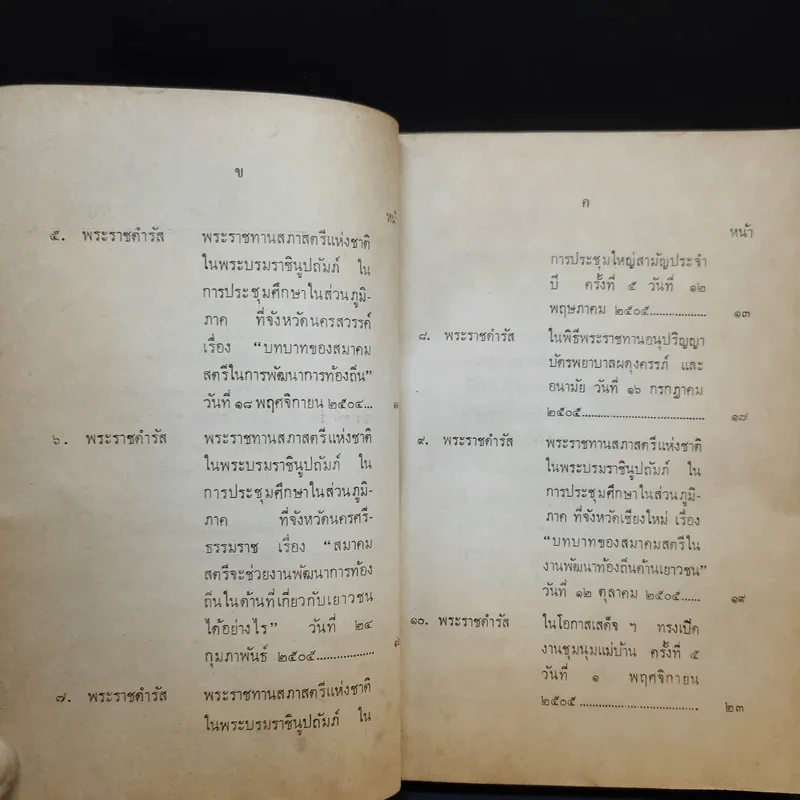 ข
หน้า
๕. พระราชดำรัส พระราชทานสภาสตรีแห่งชาติ
ในพระบรมราชินูปถัมภ์ ใน
การประชุมศึกษาในส่วนภูมิ-
ภาค ที่จังหวัดนครสวรรค์
เรื่อง “บทบาทของสมาคม
สตรีในการพัฒนาการท้องถิ่น”
วันที่ ๑๘ พฤศจิกายน ๒๕๐๔...
๖. พระราชดำรัส พระราชทานสภาสตรีแห่งชาติ
ในพระบรมราชินูปถัมภ์ ใน
การประชุมศึกษาในส่วนภูมิ-
ภาค ที่จังหวัดนครศรี-
ธรรมราช เรื่อง “สมาคม
สตรีจะช่วยงานพัฒนาการท้อง
ถิ่นในด้านที่เกี่ยวกับเยาวชน
ได้อย่างไร” วันที่ ๒๔
กุมภาพันธ์ ๒๕๐๕..................
๗. พระราชดำรัส พระราชทานสภาสตรีแห่งชาติ
ในพระบรมราชินูปถัมภ์ ใน
ค
หน้า
การประชุมใหญ่สามัญประจำ
ปี ครั้งที่ ๕ วันที่ ๑๒
พฤษภาคม ๒๕๐๕................. ๑๓
๘. พระราชดำรัส ในพิธีพระราชทานอนุปริญญา
บัตรพยาบาลผดุงครรภ์ และ
อนามัย วันที่ ๑๖ กรกฎาคม
๒๕๐๕..................................... ๑๗
๙. พระราชดำรัส พระราชทานสภาสตรีแห่งชาติ
ในพระบรมราชินูปถัมภ์ ใน
การประชุมศึกษาในส่วนภูมิ-
ภาค ที่จังหวัดเชียงใหม่ เรื่อง
“บทบาทของสมาคมสตรีใน
งานพัฒนาท้องถิ่นด้านเยาวชน”
วันที่ ๑๒ ตุลาคม ๒๕๐๕...... ๑๙
๑๐. พระราชดำรัส ในโอกาสเสด็จ ฯ ทรงเปิด
งานชุมนุมแม่บ้าน ครั้งที่ ๕
วันที่ ๑ พฤศจิกายน
๒๕๐๕ ................................... ๒๓